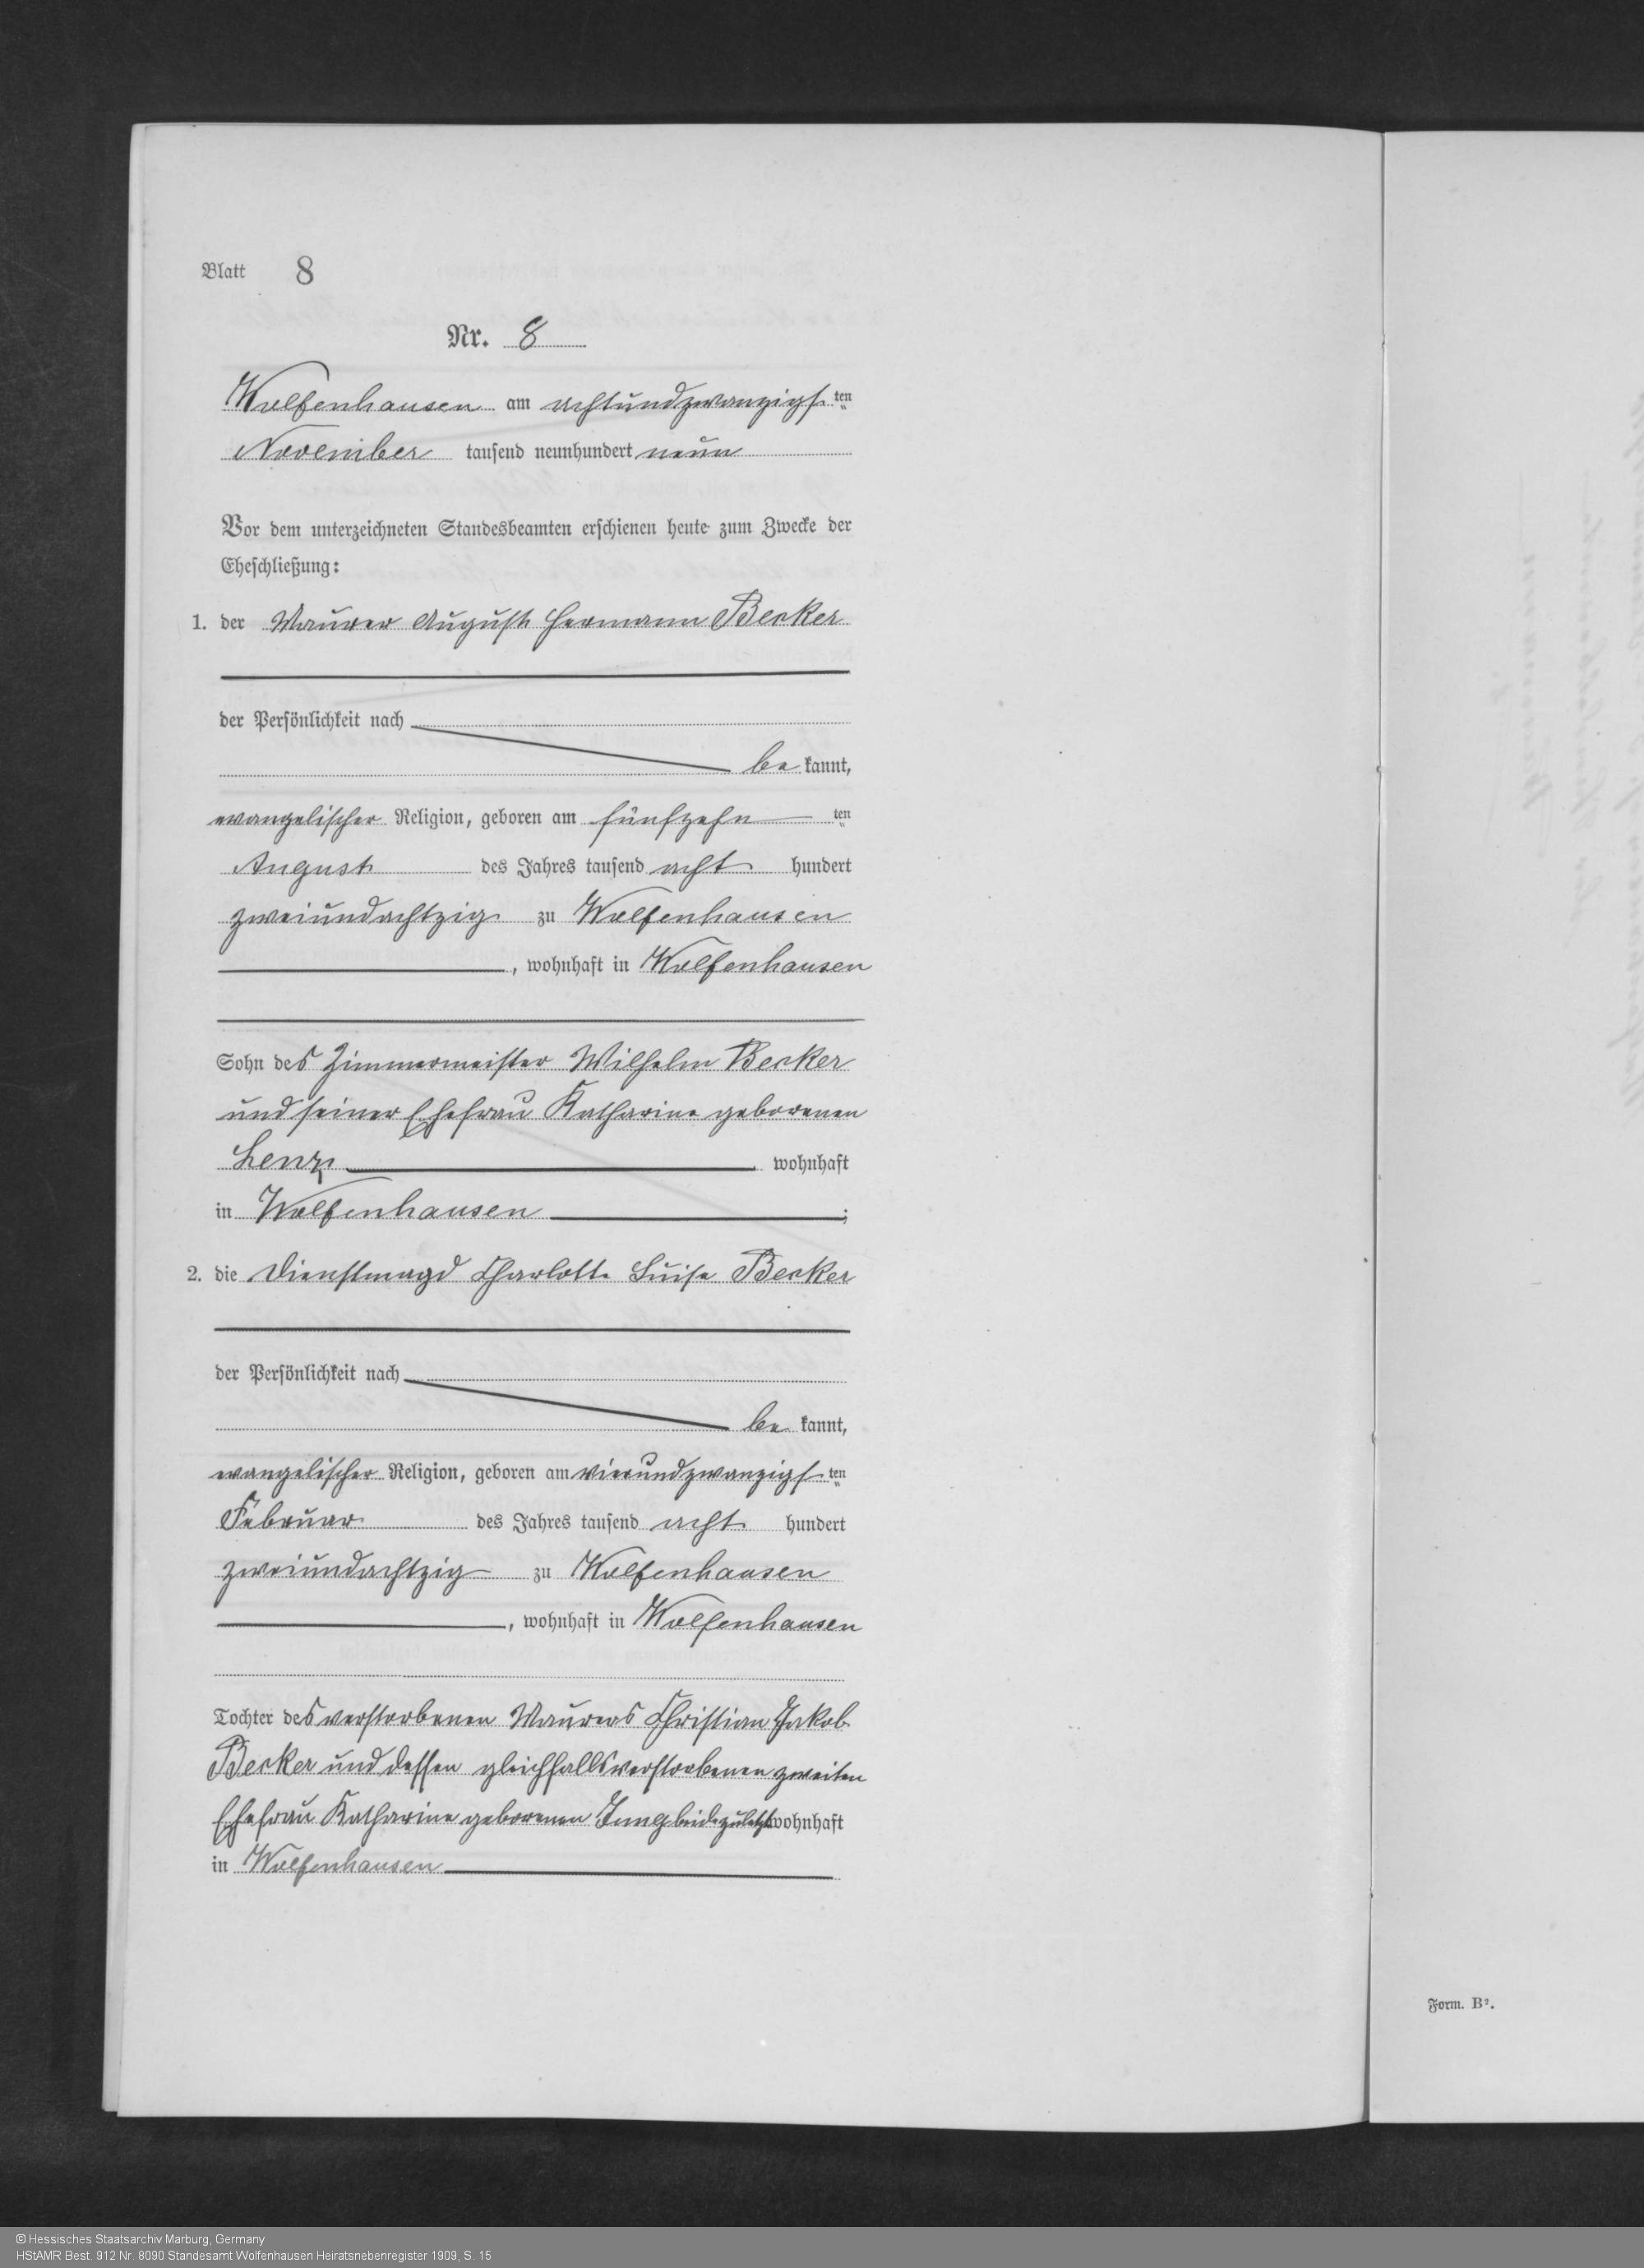 Blatt 8
Nr. 8
Wolfenhausen am achtundzwanzigsten
November tausend neunhundert neun
Vor dem unterzeichneten Standesbeamten erschienen heute zum Zwecke der
Eheschließung:
1. der Maurer August Hermann Becker
der Persönlichkeit nach
be kannt,
evangelischer Religion, geboren am fünfzehn ten
August des Jahres tausend acht hundert
zweiundachtzig zu Wolfenhausen
, wohnhaft in Wolfenhausen
Sohn des Zimmermeister Wilhelm Becker
und seiner Ehefrau Katharine geborenen
Lenz wohnhaft
in Wolfenhausen ;
2. die Dienstmagd Charlotte Luise Becker
der Persönlichkeit nach
be kannt,
evangelischer Religion, geboren am vierundzwanzigsten
Februar des Jahres tausend acht hundert
zweiundachtzig zu Wolfenhausen
, wohnhaft in Wolfenhausen
Tochter des verstorbenen Maurers Christian Jakob
Becker und dessen gleichfalls verstorbenen zweiten
Ehefrau Katharine geborenen Jung beide zuletzt wohnhaft
in Wolfenhausen
Form. B².
© Hessisches Staatsarchiv Marburg, Germany
HStAMR Best. 912 Nr. 8090 Standesamt Wolfenhausen Heiratsnebenregister 1909, S. 15